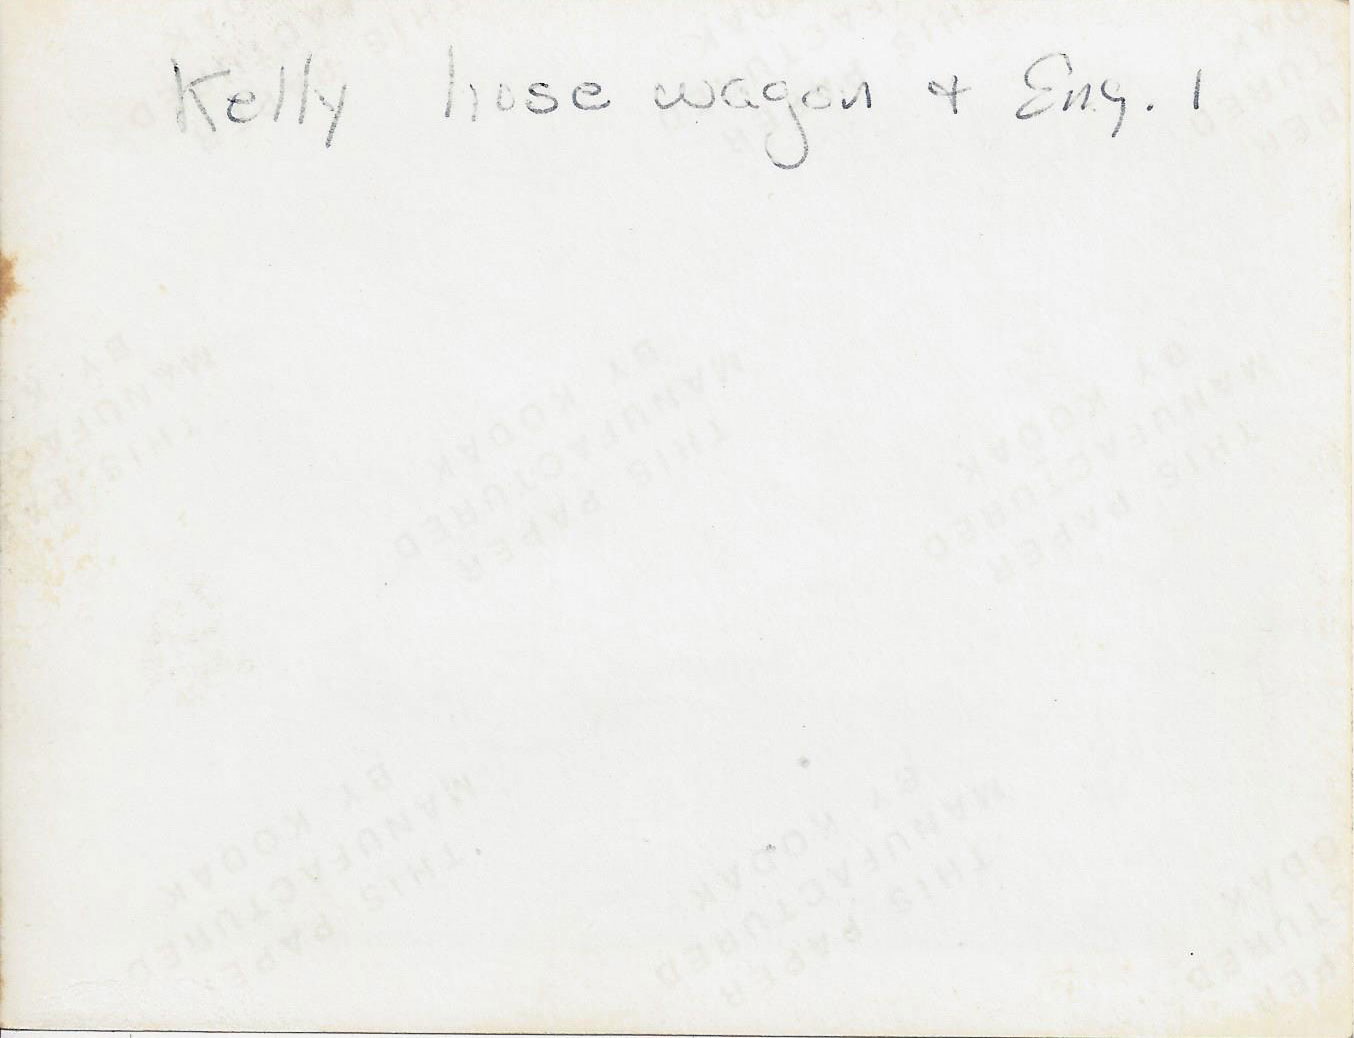 Kelly hose wagon & Eng. 1
THIS PAPER
MANUFACTURED
BY KODAK
THIS PAPER
MANUFACTURED
BY KODAK
THIS PAPER
MANUFACTURED
BY KODAK
THIS PAPER
MANUFACTURED
BY KODAK